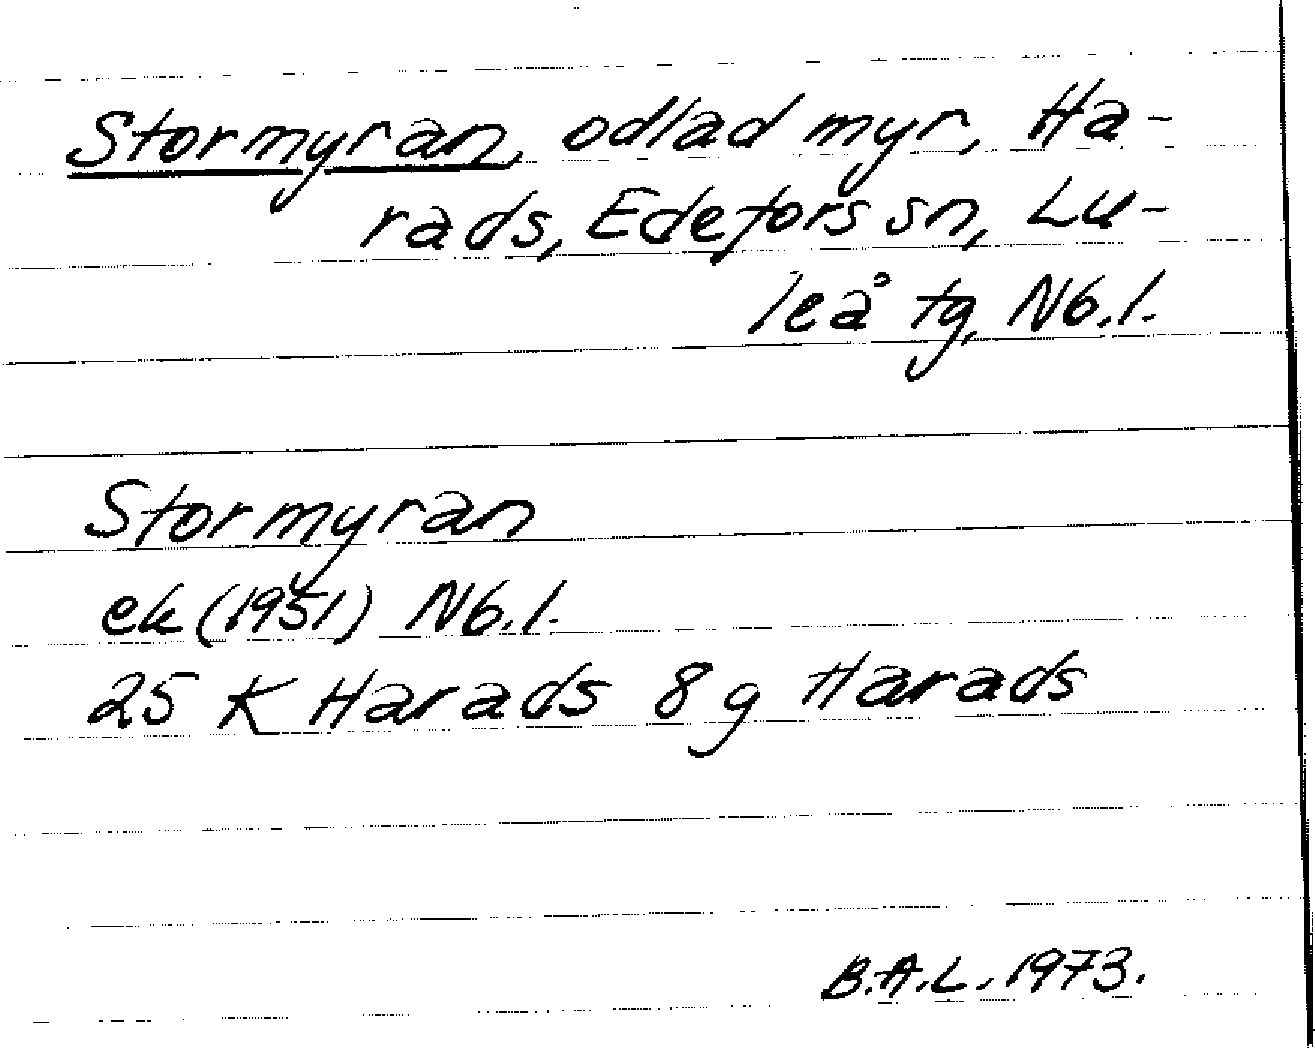 Stormyran, odlad myr, Ha-
rads, Edefors sn, Lu-
leå tg, Nb.l.
Stormyran
ek (1951) Nb.l.
25 K Harads 8 g Harads
B.A.L. 1973.